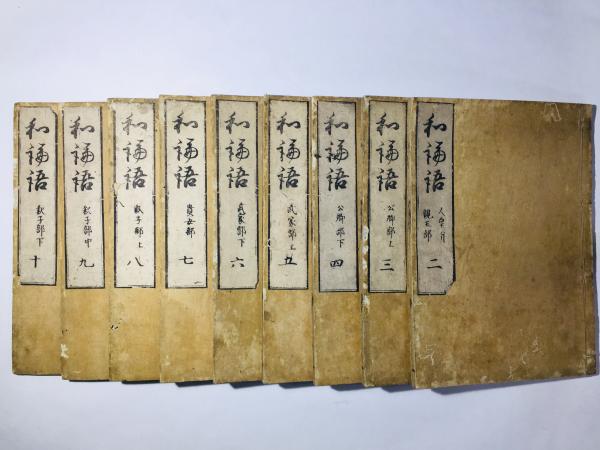 和論語
人皇并
親王部
二
和論語
公卿部上
三
和論語
公卿部下
四
和論語
武家部上
五
和論語
武家部下
六
和論語
貴女部
七
和論語
釈子部上
八
和論語
釈子部中
九
和論語
釈子部下
十